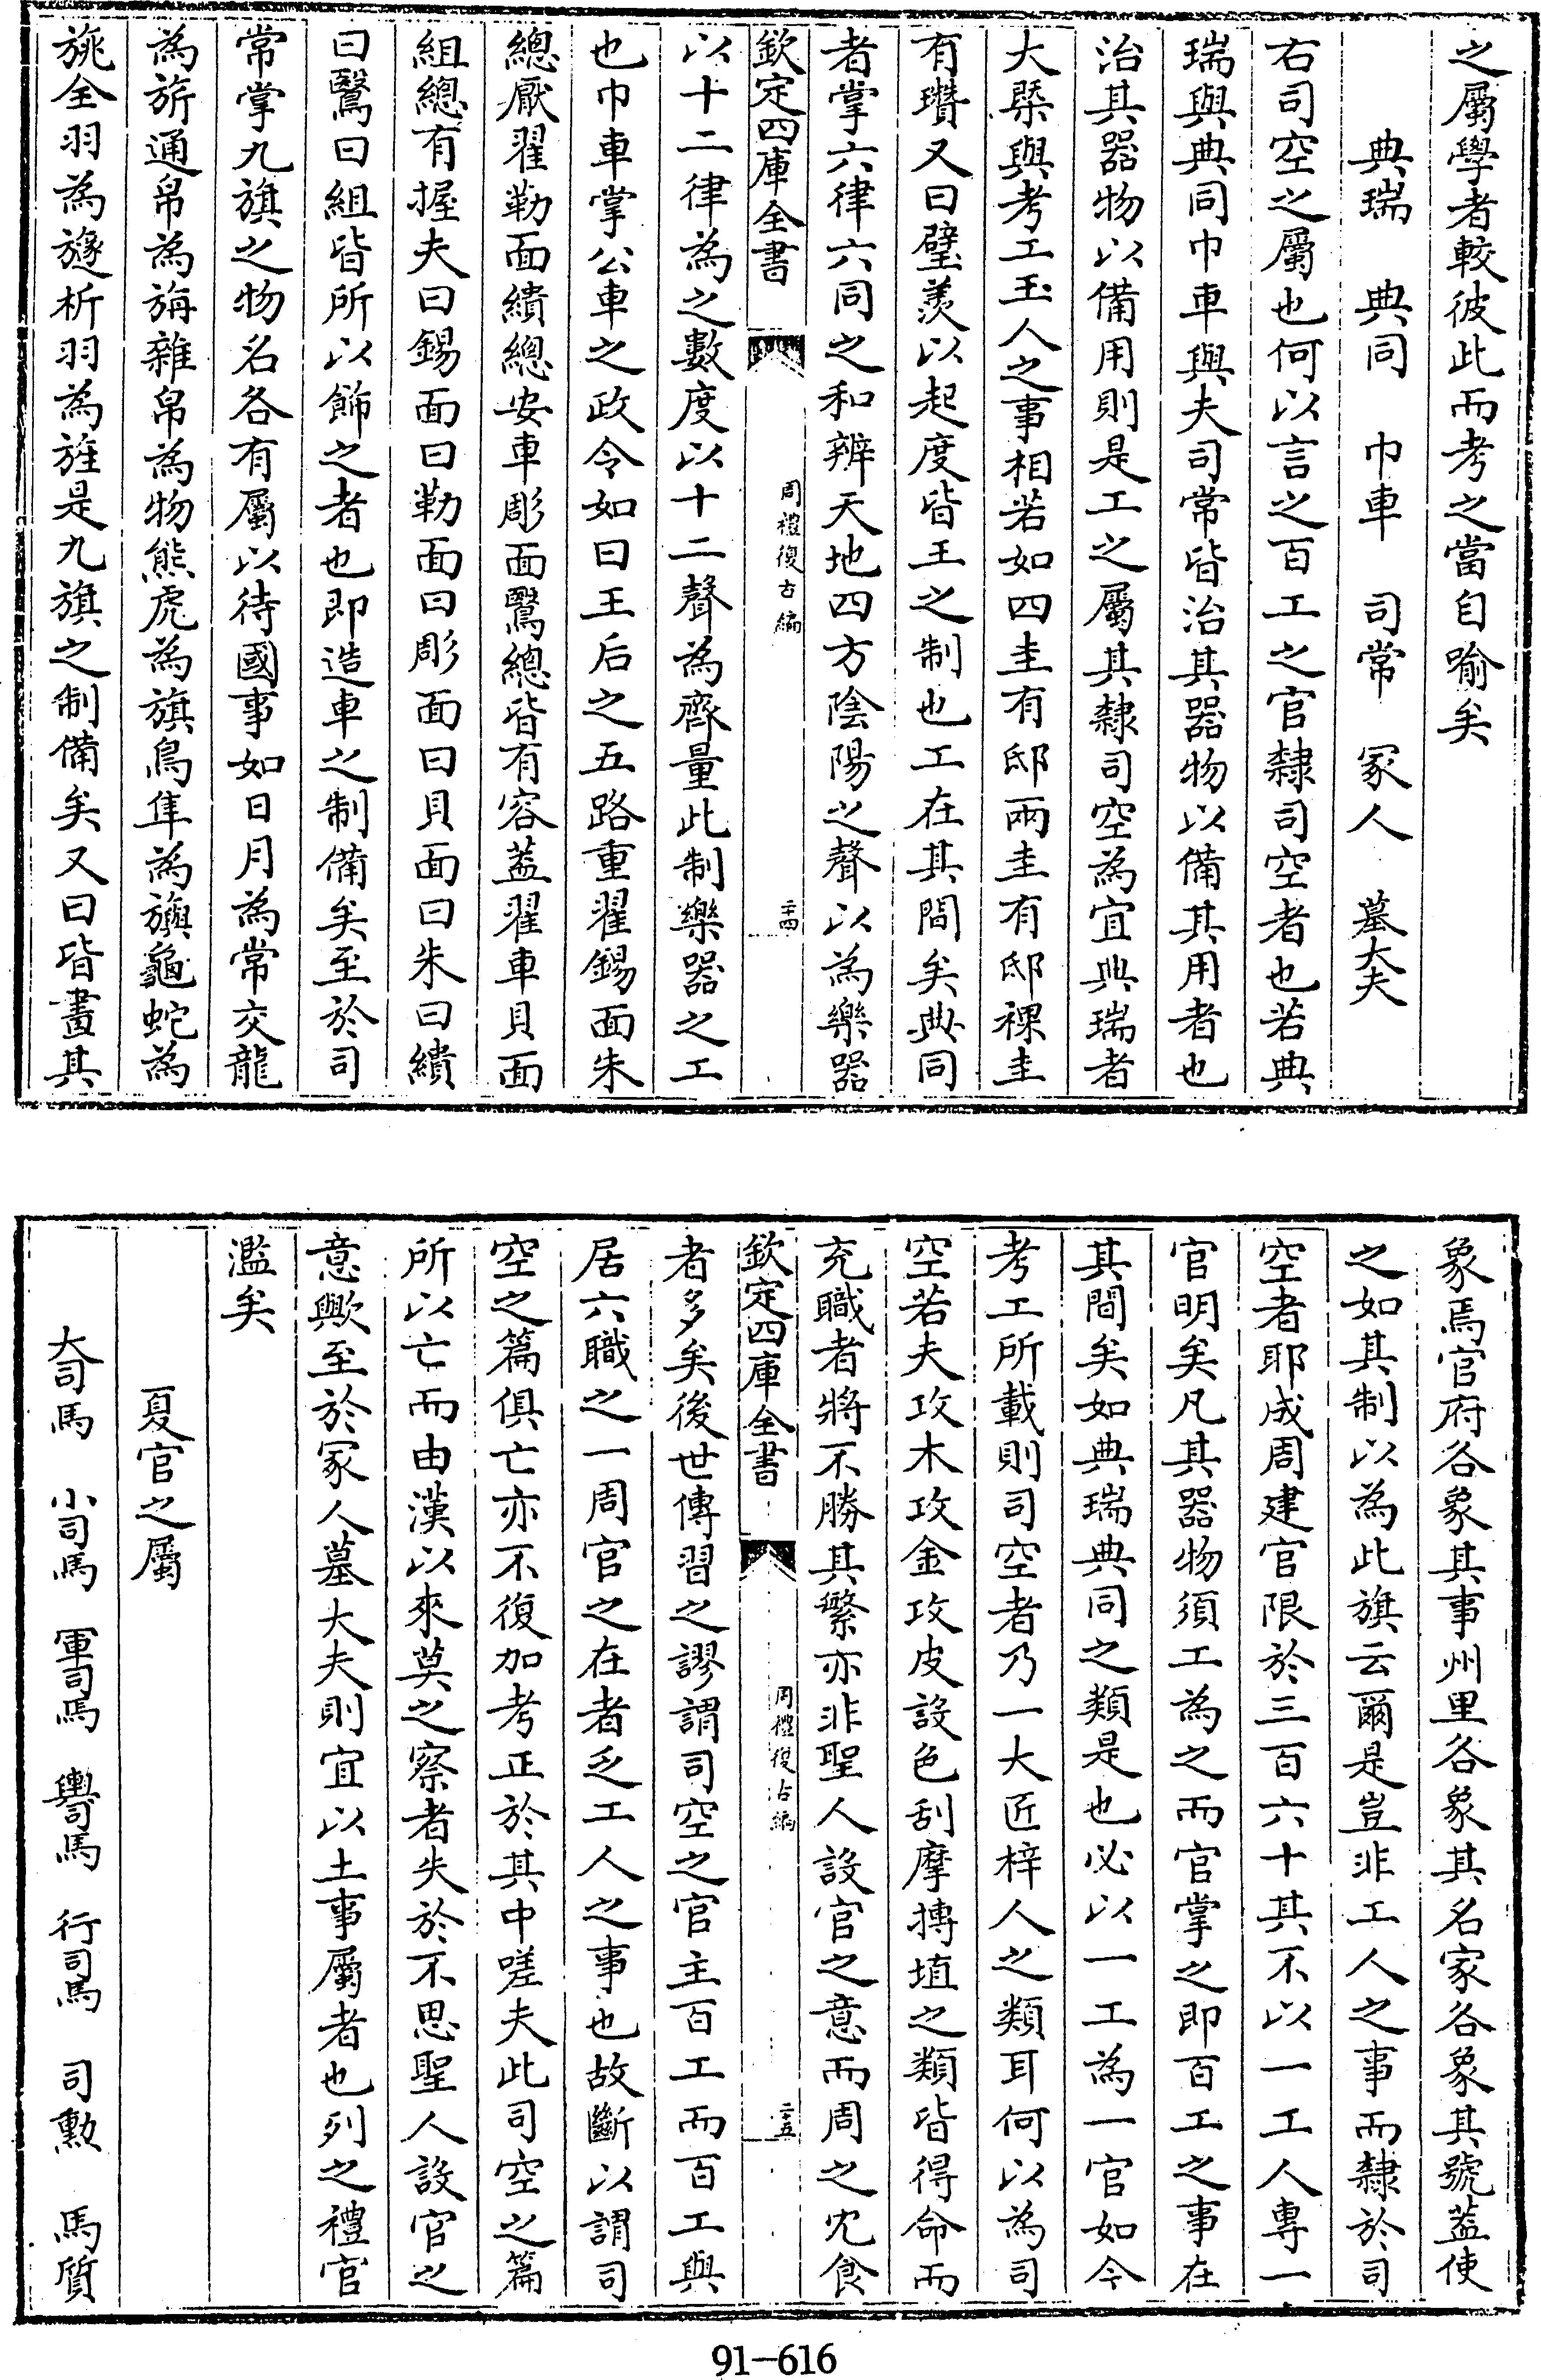 之屬學者較彼此而考之當自喻矣
典瑞　典同　巾車　司常　冢人　墓大夫
右司空之屬也何以言之百工之官隸司空者也若典
瑞與典同巾車與夫司常皆治其器物以備其用者也
治其器物以備用則是工之屬其隸司空為宜典瑞者
大槩與考工玉人之事相若如四圭有邸兩圭有邸祼圭
有瓚又曰璧羡以起度皆王之制也工在其間矣典同
者掌六律六同之和辨天地四方陰陽之聲以為樂器
欽定四庫全書
周禮復古編
二十四
以十二律為之數度以十二聲為齊量此制樂器之工
也巾車掌公車之政令如曰王后之五路重翟錫面朱
總厭翟勒面繢總安車彫面鷖總皆有容蓋翟車貝面
組總有握夫曰錫面曰勒面曰彫面曰貝面曰朱曰繢
曰鷖曰組皆所以飾之者也即造車之制備矣至於司
常掌九旗之物名各有屬以待國事如日月為常交龍
為旂通帛為旜雜帛為物熊虎為旗鳥隼為旟龜蛇為
旐全羽為旞析羽為旌是九旗之制備矣又曰皆畫其
象焉官府各象其事州里各象其名家各象其號蓋使
之如其制以為此旗云爾是豈非工人之事而隸於司
空者耶成周建官限於三百六十其不以一工人專一
官明矣凡其器物須工為之而官掌之即百工之事在
其間矣如典瑞典同之類是也必以一工為一官如今
考工所載則司空者乃一大匠梓人之類耳何以為司
空若夫攻木攻金攻皮設色刮摩摶埴之類皆得命而
充職者將不勝其繁亦非聖人設官之意而周之冗食
欽定四庫全書
周禮復古編
二十五
者多矣後世傳習之謬謂司空之官主百工而百工與
居六職之一周官之在者乏工人之事也故斷以謂司
空之篇俱亡亦不復加考正於其中嗟夫此司空之篇
所以亡而由漢以來莫之察者失於不思聖人設官之
意歟至於冢人墓大夫則宜以土事屬者也列之禮官
濫矣
夏官之屬
大司馬　小司馬　軍司馬　輿司馬　行司馬　司勳　馬質
91-616